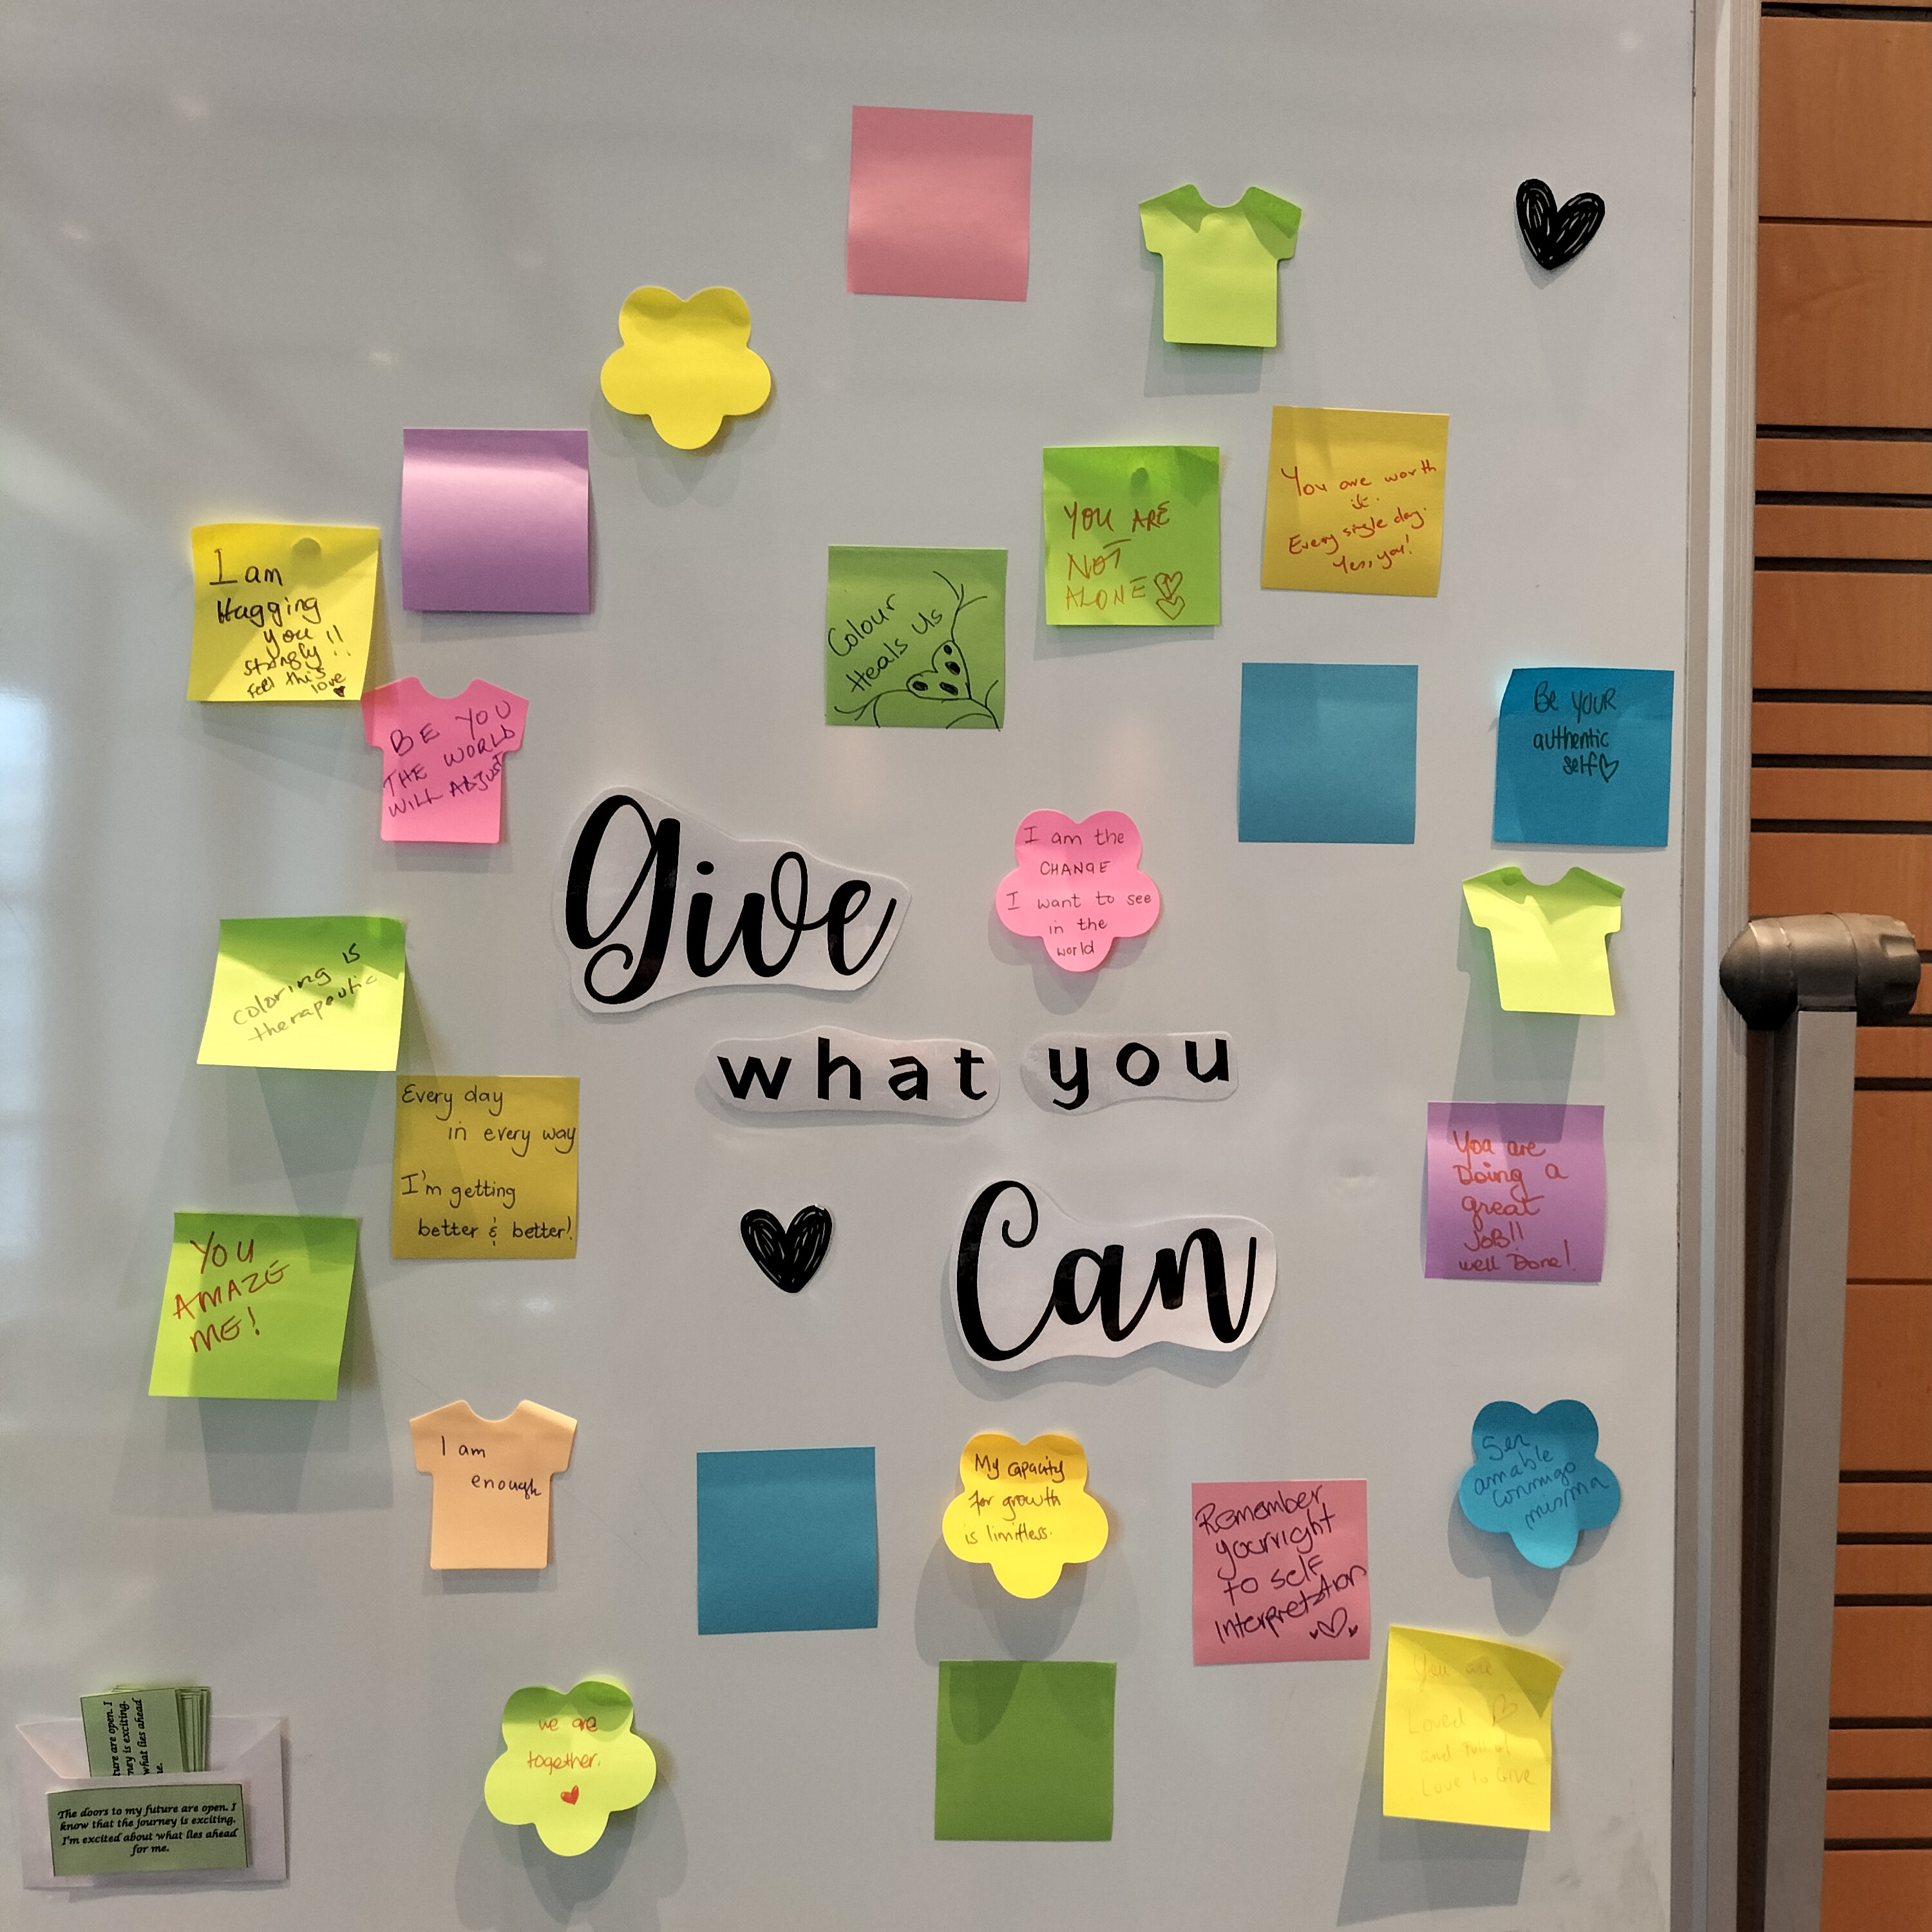 YOU ARE
NOT
ALONE
You are worth
it.
Every single day.
Yes, you!
I am
Hugging
you !!
strongly !!
Feel this
love
Colour
Heals Us
BE YOU
THE WORLD
WILL ADJUST
Be YOUR
authentic
self
Give
what you
Can
I am the
CHANGE
I want to see
in the
world
coloring is
therapeutic
Every day
in every way
I'm getting
better & better!
You are
Doing a
great
JOB!!
well Done!
YOU
AMAZE
ME!
I am
enough
My capacity
for growth
is limitless.
Remember
your right
to self
interpretation
Ser
amable
conmigo
misma
we are
together.
You are
Loved
and Full of
Love to Give
ture are open. I
ney is exciting.
what lies ahead
e.
The doors to my future are open. I
know that the journey is exciting.
I'm excited about what lies ahead
for me.